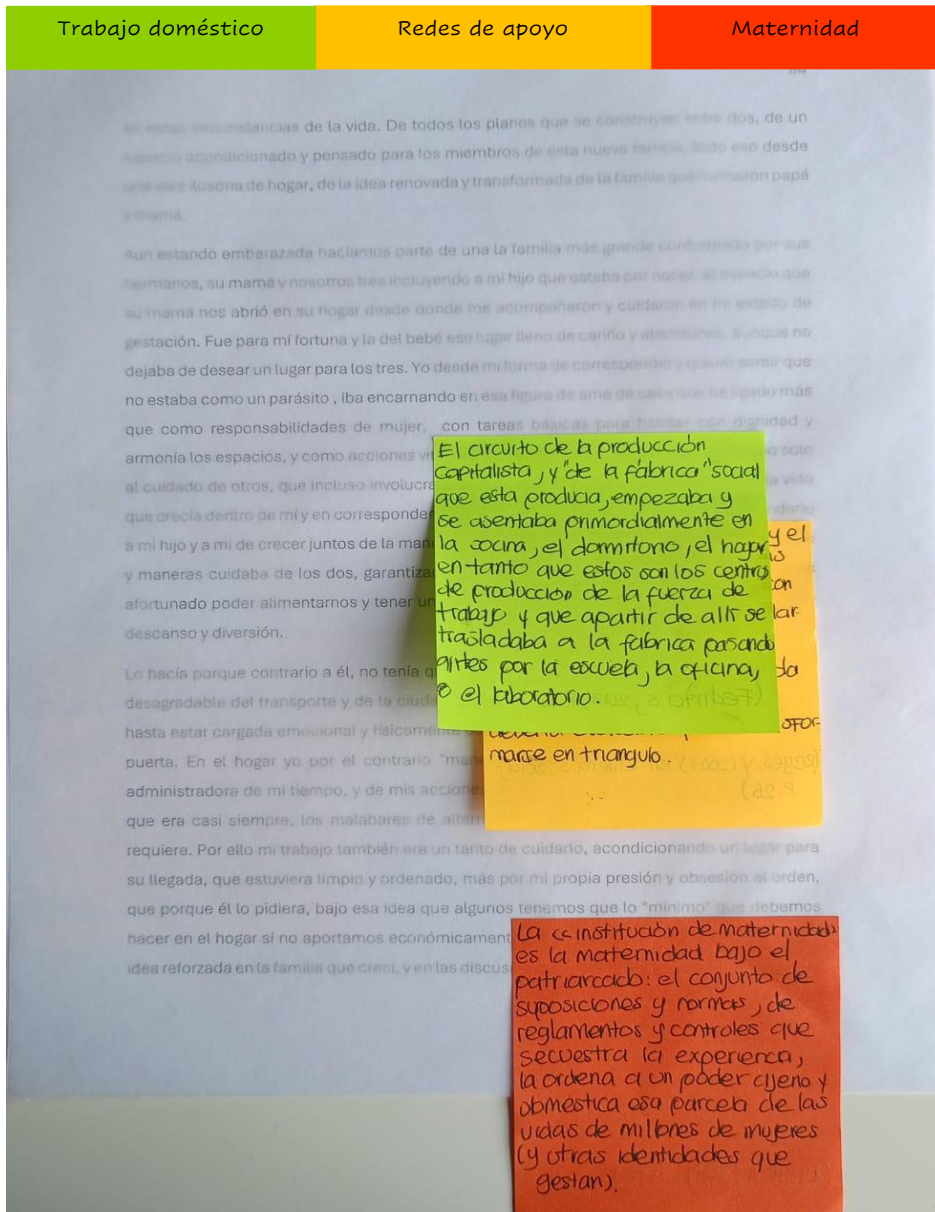 Trabajo doméstico
Redes de apoyo
Maternidad
64
circunstancias de la vida. De todos los planes que se construyen entre dos, de un
acondicionado y pensado para los miembros de esta nueva familia, todo eso desde
una idea ilusoria de hogar, de la idea renovada y transformada de la familia que formaron papá
y mamá.
Aun estando embarazada hacíamos parte de una la familia más grande conformada por sus
hermanos, su mamá y nosotros tres incluyendo a mi hijo que estaba por nacer, el espacio que
su mamá nos abrió en su hogar desde donde me acompañaron y cuidaron en mi estado de
gestación. Fue para mí fortuna y la del bebé ese lugar lleno de cariño y atenciones, aunque no
dejaba de desear un lugar para los tres. Yo desde mi forma de corresponder y querer sentir que
no estaba como un parásito , iba encarnando en esa figura de ama de casa que he ligado más
que como responsabilidades de mujer, con tareas básicas para habitar con dignidad y
armonía los espacios, y como acciones
solo
al cuidado de otros, que incluso
la vida
que crecía dentro de mí y en
a mi hijo y a mi de crecer juntos de la
y maneras cuidaba de los dos,
afortunado poder alimentarnos y tener
descanso y diversión.
Lo hacía porque contrario a él, no tenía
desagradable del transporte y de la
hasta estar cargada emocional y físicamente
puerta. En el hogar yo por el contrario
administradora de mi tiempo, y de mis
que era casi siempre, los malabares de
requiere. Por ello mi trabajo también era un tanto de cuidarlo, acondicionando un lugar para
su llegada, que estuviera limpio y ordenado, más por mi propia presión y obsesión al orden,
que porque él lo pidiera, bajo esa idea que algunos tenemos que lo "mínimo" que debemos
hacer en el hogar sí no aportamos
idea reforzada en la familia que crecí, y en las
El circuito de la producción
capitalista, y "de la fábrica" social
que esta producia, empezaba y
se asentaba primordialmente en
la cocina, el dormitorio, el hogar
en tanto que estos son los centros
de producción de la fuerza de
trabajo y que apartir de alli se
trasladaba a la fabrica pasando
antes por la escuela, la oficina,
o el laboratorio.
y el
marse en triangulo.
La "institución de maternidad"
es la maternidad bajo el
patriarcado: el conjunto de
suposiciones y normas, de
reglamentos y controles que
secuestra la experienca,
la ordena a un poder ajeno y
domestica esa parcela de las
vidas de millones de mujeres
(y otras identidades que
gestan).